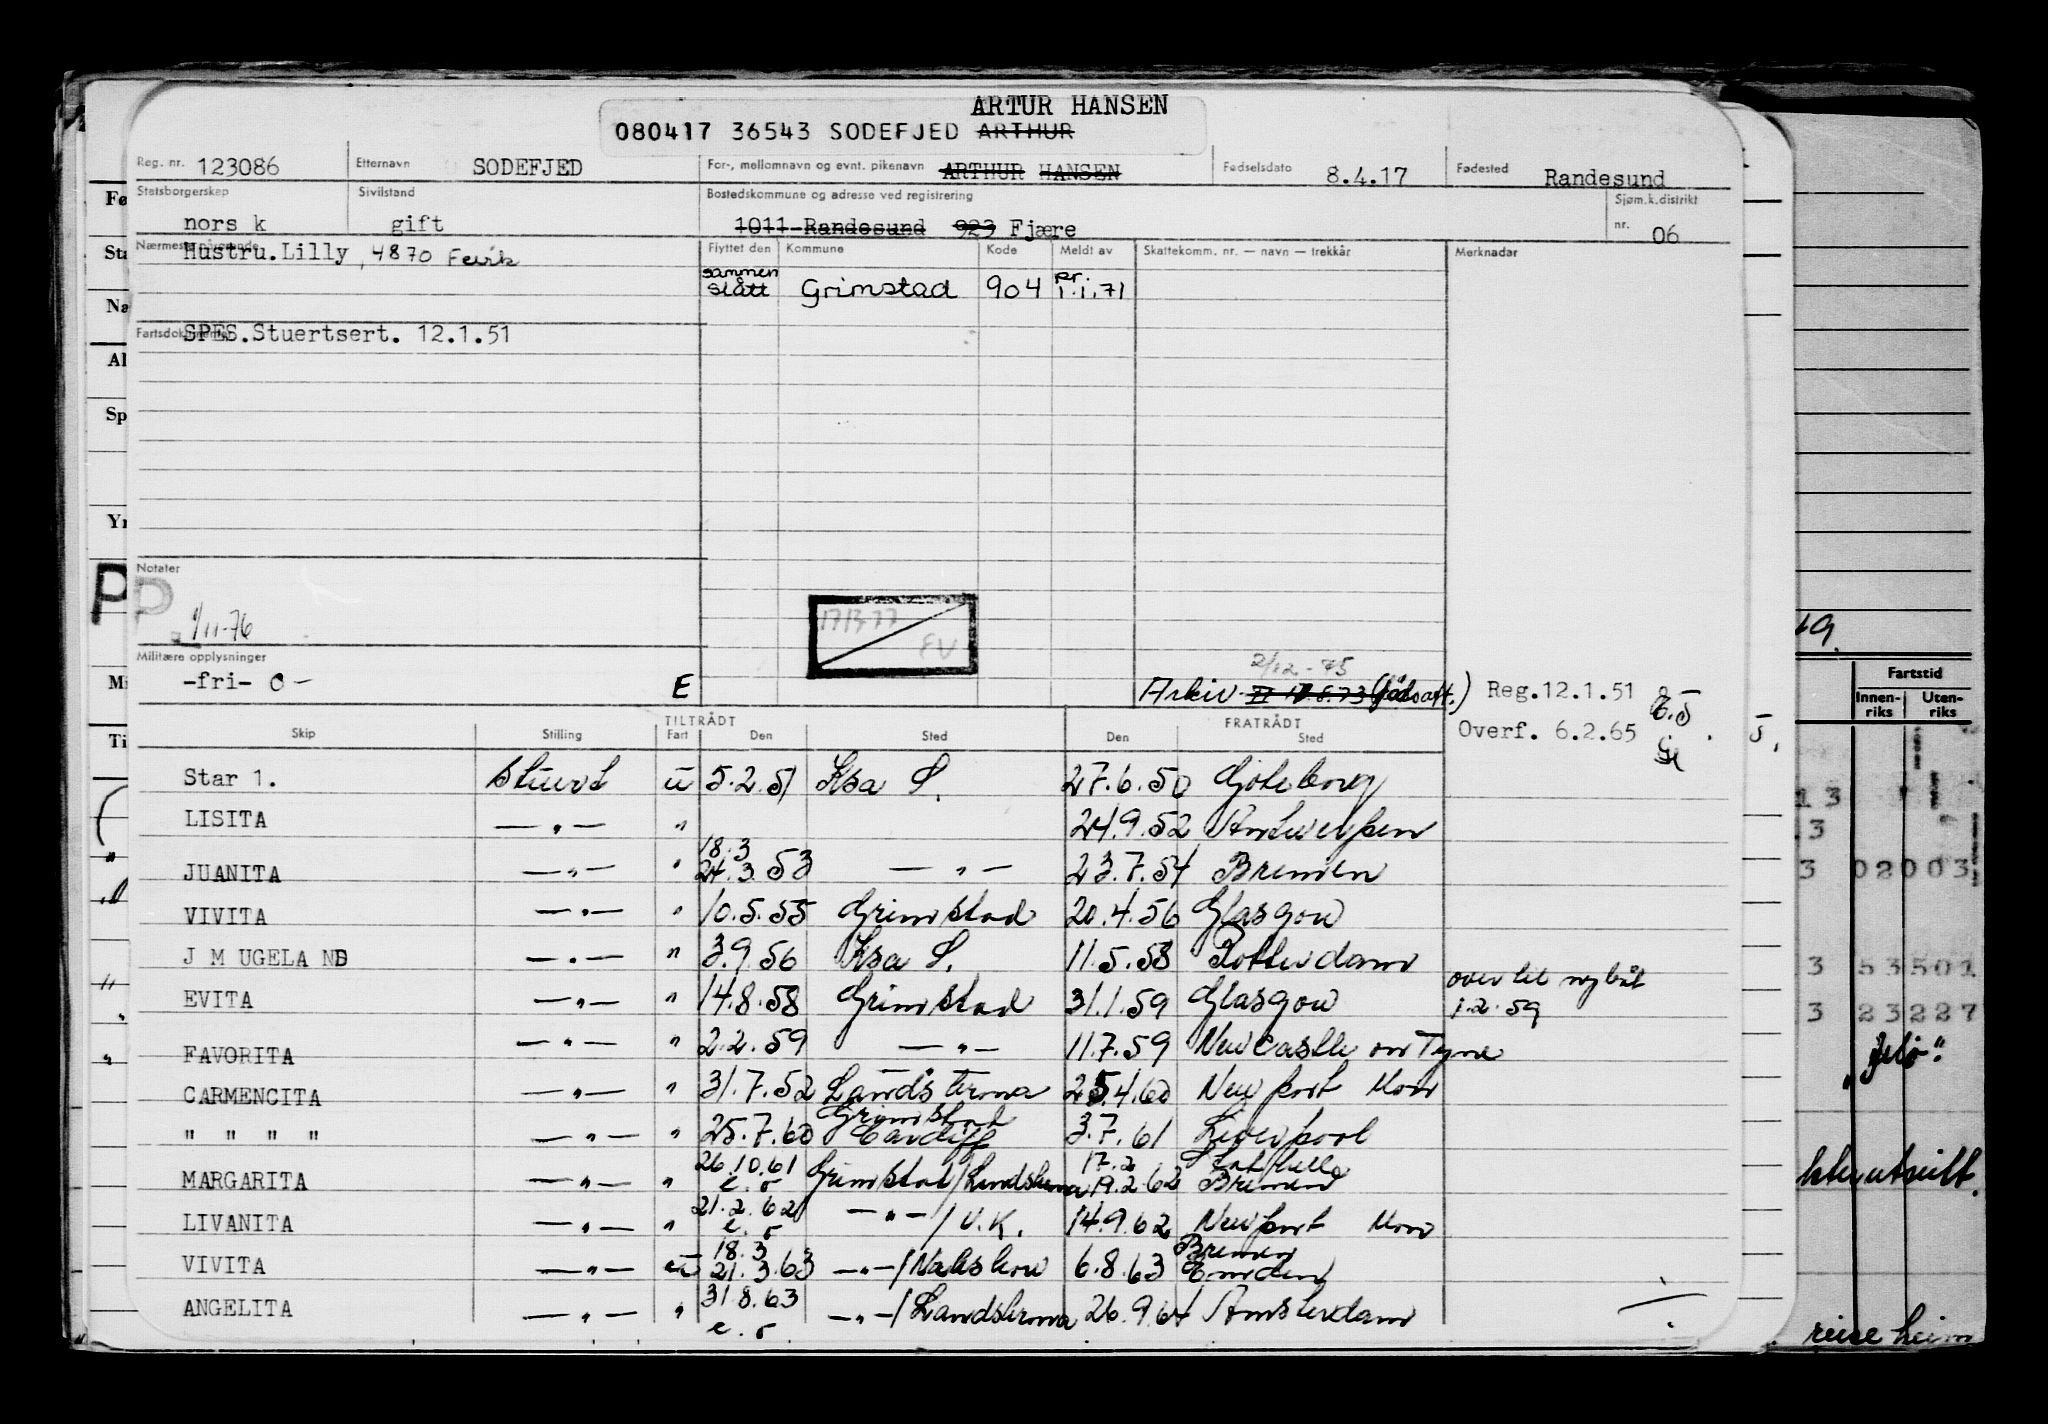 ARTUR HANSEN
080417 36543 SODEFJED ARTHUR
Reg. nr. 123086 Etternavn SODEFJED For-, mellomnavn og evnt. pikenavn ARTHUR HANSEN Fødselsdato 8.4.17 Fødested Randesund
Statsborgerskap norsk Sivilstand gift Bostedskommune og adresse ved registrering 1011 Randesund 923 Fjære Sjøm.k.distrikt nr. 06
Nærmeste pårørende Hustru.Lilly, 4870 Fevik
Flyttet den Kommune Kode Meldt av Skattekomm. nr. — navn — trekkår Merknader
sammen slått Grimstad 904 pr. 1.1.71
Fartsdokumenter SPES.Stuertsert. 12.1.51
Notater
P
P
9/11-76
17/3-77
EV
Militære opplysninger
-fri- 0 - E
2/12-75
Arkiv
Reg.12.1.51
Overf. 6.2.65
TILTRÅDT FRATRÅDT
Skip Stilling Fart Den Sted Den Sted
Star 1. Stuert u 5.2.51 Ksa S. 27.6.50 Göteborg
LISITA —"— " 24.9.52 Antwerpen
JUANITA —"— " 18.3 24.3.53 —"— 23.7.54 Bremen
VIVITA —"— " 10.5.55 Grimstad 20.4.56 Glasgow
J M UGELA ND —"— " 3.9.56 Ksa S. 11.5.58 Rotterdam
EVITA —"— " 14.8.58 Grimstad 31.1.59 Glasgow over til ny båt 1.2.59
FAVORITA —"— " 2.2.59 —"— 11.7.59 Newcastle on Tyne
CARMENCITA —"— " 31.7.52 Landskrona 25.4.60 Newport Mon
" " " " —"— " 25.7.60 Grimstad Cardiff 3.7.61 Liverpool
MARGARITA —"— " 26.10.61 e.o Grimstad/Landskrona 17.2 19.2.62 Bremen
LIVANITA —"— " 21.2.62 e.o —"—/U.K. 14.9.62 Newport Mon
VIVITA —"— u 18.3 21.3.63 —"—/Nakskov 6.8.63 Bremen Emden
ANGELITA —"— " 31.8.63 e.o —"—/Landskrona 26.9.64 Amsterdam
Fartstid
Innen-riks Uten-riks
13
3
3 02003
3 53501
3 23227
reise heim